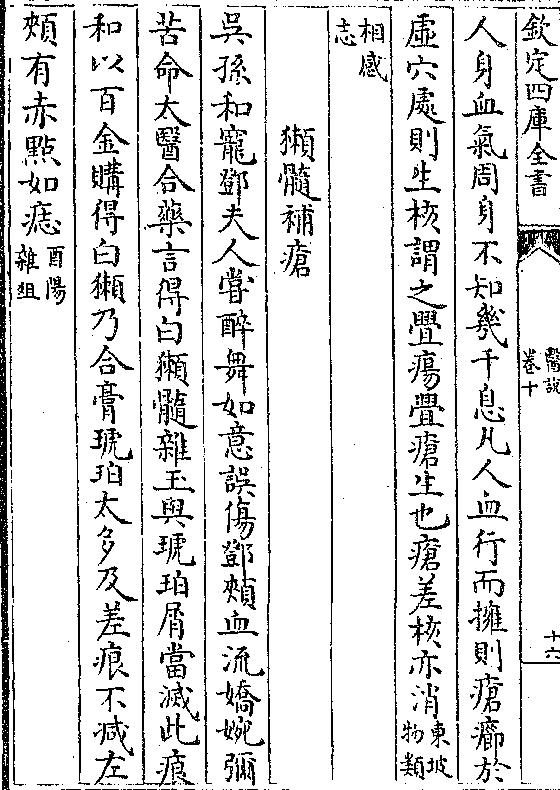 欽定四庫全書
醫說
卷十
十六
人身血氣周身不知幾千息凡人血行而擁則瘡癤於
虛穴處則生核謂之疊瘍疊瘡生也瘡差核亦消東坡
物類
相感
志
獺髓補瘡
吳孫和寵鄧夫人嘗醉舞如意誤傷鄧頰血流嬌婉彌
苦命太醫合藥言得白獺髓雜玉與琥珀屑當滅此痕
和以百金購得白獺乃合膏琥珀太多及差痕不减左
頰有赤點如痣酉陽
雜俎